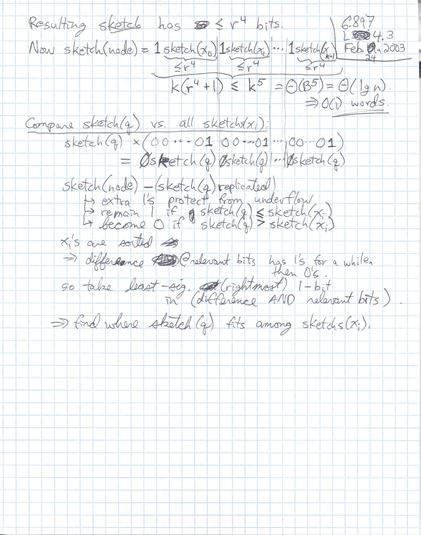 Resulting sketch has ≤ r⁴ bits.
6.897
L 4.3
Feb 24, 2003
Now sketch(node) = 1 sketch(x₀) 1 sketch(x₁) ··· 1 sketch(x_{k-1})
≤r⁴ ≤r⁴ ≤r⁴
k(r⁴+1) ≤ k⁵ = Θ(B⁵) = Θ(lg n)
⇒ O(1) words.
Compare sketch(q) vs. all sketch(xᵢ):
sketch(q) × (00···01 00···01 ··· 00··01)
= 0sketch(q) 0sketch(q) ··· 0sketch(q)
sketch(node) – (sketch(q) replicated)
↳ extra 1's protect from underflow
↳ remain 1 if sketch(q) ≤ sketch(xᵢ)
↳ become 0 if sketch(q) > sketch(xᵢ)
xᵢ's are sorted
⇒ difference @ relevant bits has 1's for a while,
then 0's.
so take least-sig. (rightmost) 1-bit
in (difference AND relevant bits).
⇒ find where sketch(q) fits among sketchs(xᵢ).